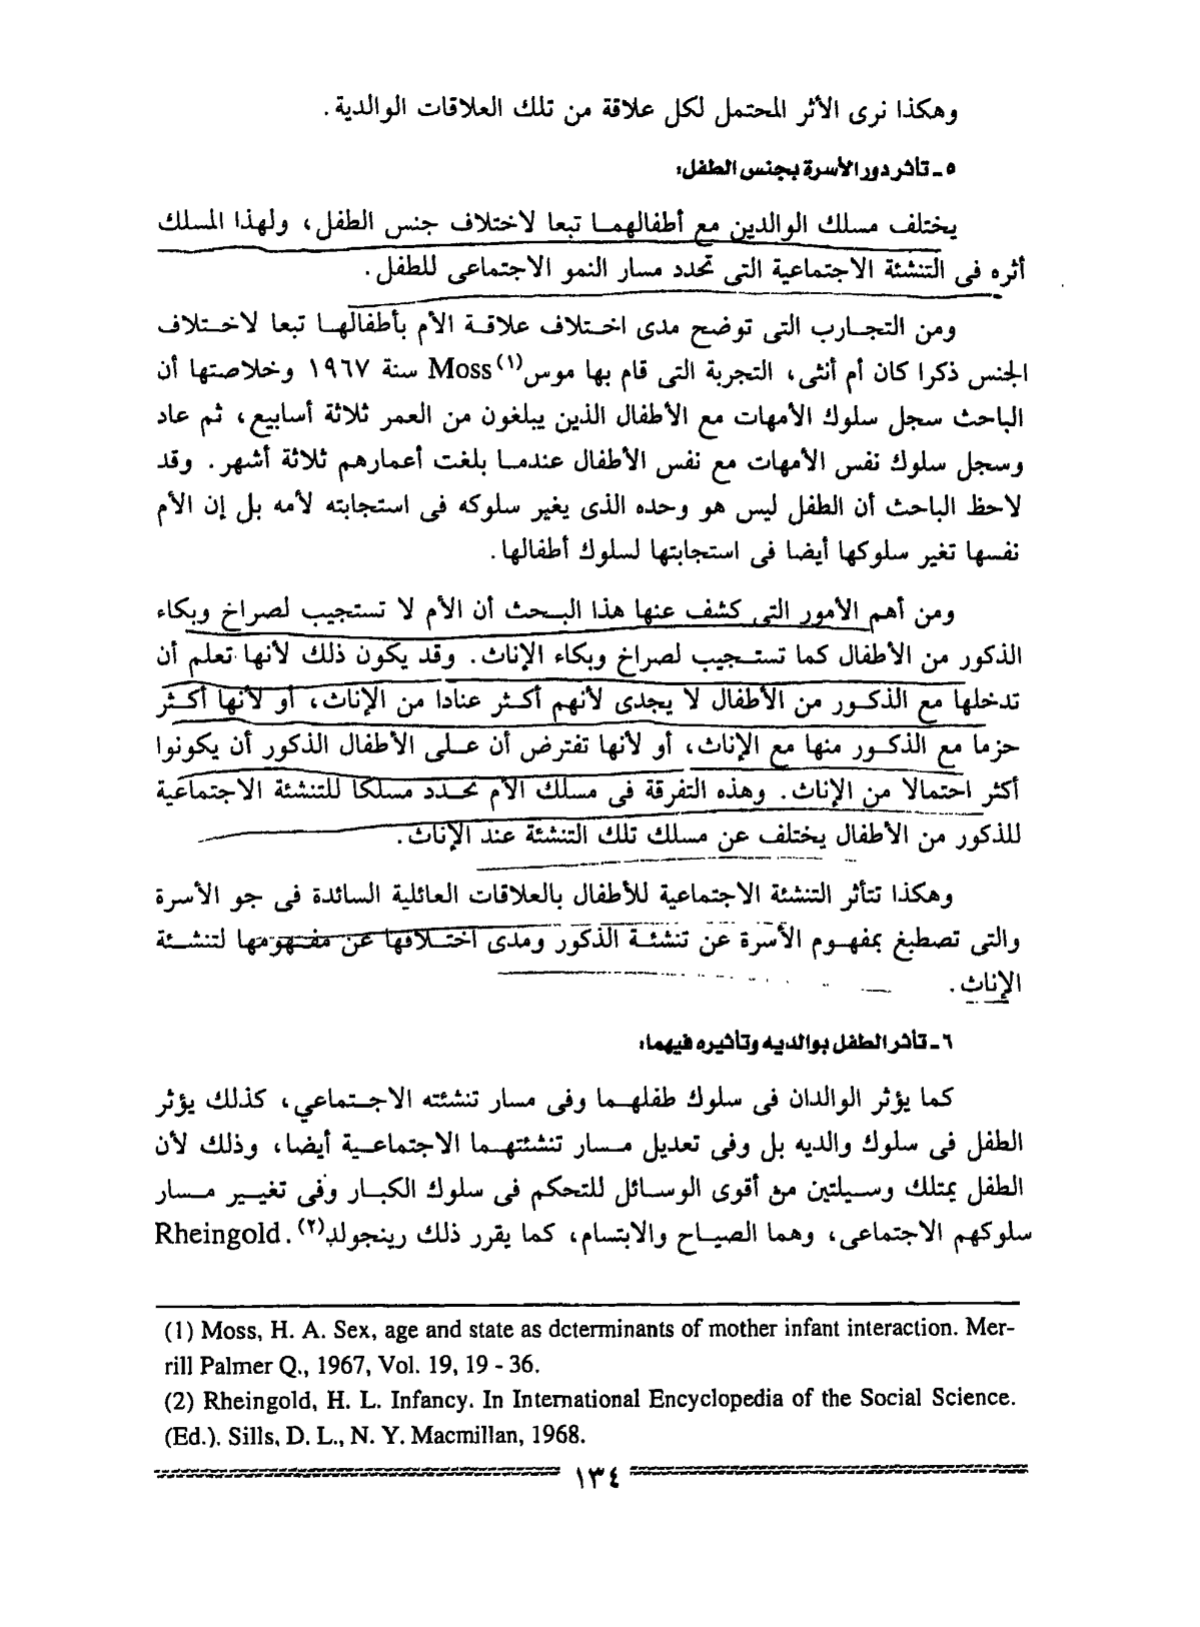 وهكذا نرى الأثر المحتمل لكل علاقة من تلك العلاقات الوالدية .
٥ ـ تأثر دور الأسرة بجنس الطفل:
يختلف مسلك الوالدين مع أطفالهمـا تبعا لاختلاف جنس الطفل، ولهذا المسلك
أثره فى التنشئة الاجتماعية التى تحدد مسار النمو الاجتماعى للطفل .
ومن التجـارب التى توضح مدى اختـلاف علاقـة الأم بأطفالهـا تبعا لاخـتلاف
الجنس ذكرا كان أم أنثى، التجربة التى قام بها موس(١) Moss سنة ١٩٦٧ وخلاصتها أن
الباحث سجل سلوك الأمهات مع الأطفال الذين يبلغون من العمر ثلاثة أسابيع، ثم عاد
وسجل سلوك نفس الأمهات مع نفس الأطفال عندمـا بلغت أعمارهم ثلاثة أشهر . وقد
لاحظ الباحث أن الطفل ليس هو وحده الذى يغير سلوكه فى استجابته لأمه بل إن الأم
نفسها تغير سلوكها أيضا فى استجابتها لسلوك أطفالها .
ومن أهم الأمور التى كشف عنها هذا البـحث أن الأم لا تستجيب لصراخ وبكاء
الذكور من الأطفال كما تستـجيب لصراخ وبكاء الإناث . وقد يكون ذلك لأنها تعلم أن
تدخلها مع الذكـور من الأطفال لا يجدى لأنهم أكـثر عنادا من الإناث، أو لأنها أكـثر
حزما مع الذكـور منها مع الإناث، أو لأنها تفترض أن عـلى الأطفال الذكور أن يكونوا
أكثر احتمالا من الإناث . وهذه التفرقة فى مسلك الأم تحـدد مسلكا للتنشئة الاجتماعية
للذكور من الأطفال يختلف عن مسلك تلك التنشئة عند الإناث .
وهكذا تتأثر التنشئة الاجتماعية للأطفال بالعلاقات العائلية السائدة فى جو الأسرة
والتى تصطبغ بمفهـوم الأسرة عن تنشئـة الذكور ومدى اختـلافها عن مفـهومها لتنشـئة
الإناث .
٦ ـ تأثر الطفل بوالديه وتأثيره فيهما:
كما يؤثر الوالدان فى سلوك طفلهـما وفى مسار تنشئته الاجـتماعي، كذلك يؤثر
الطفل فى سلوك والديه بل وفى تعديل مـسار تنشئتهـما الاجتماعـية أيضا، وذلك لأن
الطفل يمتلك وسـيلتين من أقوى الوسـائل للتحكم فى سلوك الكبـار وفى تغيـير مـسار
سلوكهم الاجتماعى، وهما الصيـاح والابتسام، كما يقرر ذلك رينجولد(٢) Rheingold .
(1) Moss, H. A. Sex, age and state as determinants of mother infant interaction. Mer-
rill Palmer Q., 1967, Vol. 19, 19 - 36.
(2) Rheingold, H. L. Infancy. In International Encyclopedia of the Social Science.
(Ed.). Sills, D. L., N. Y. Macmillan, 1968.
١٣٤